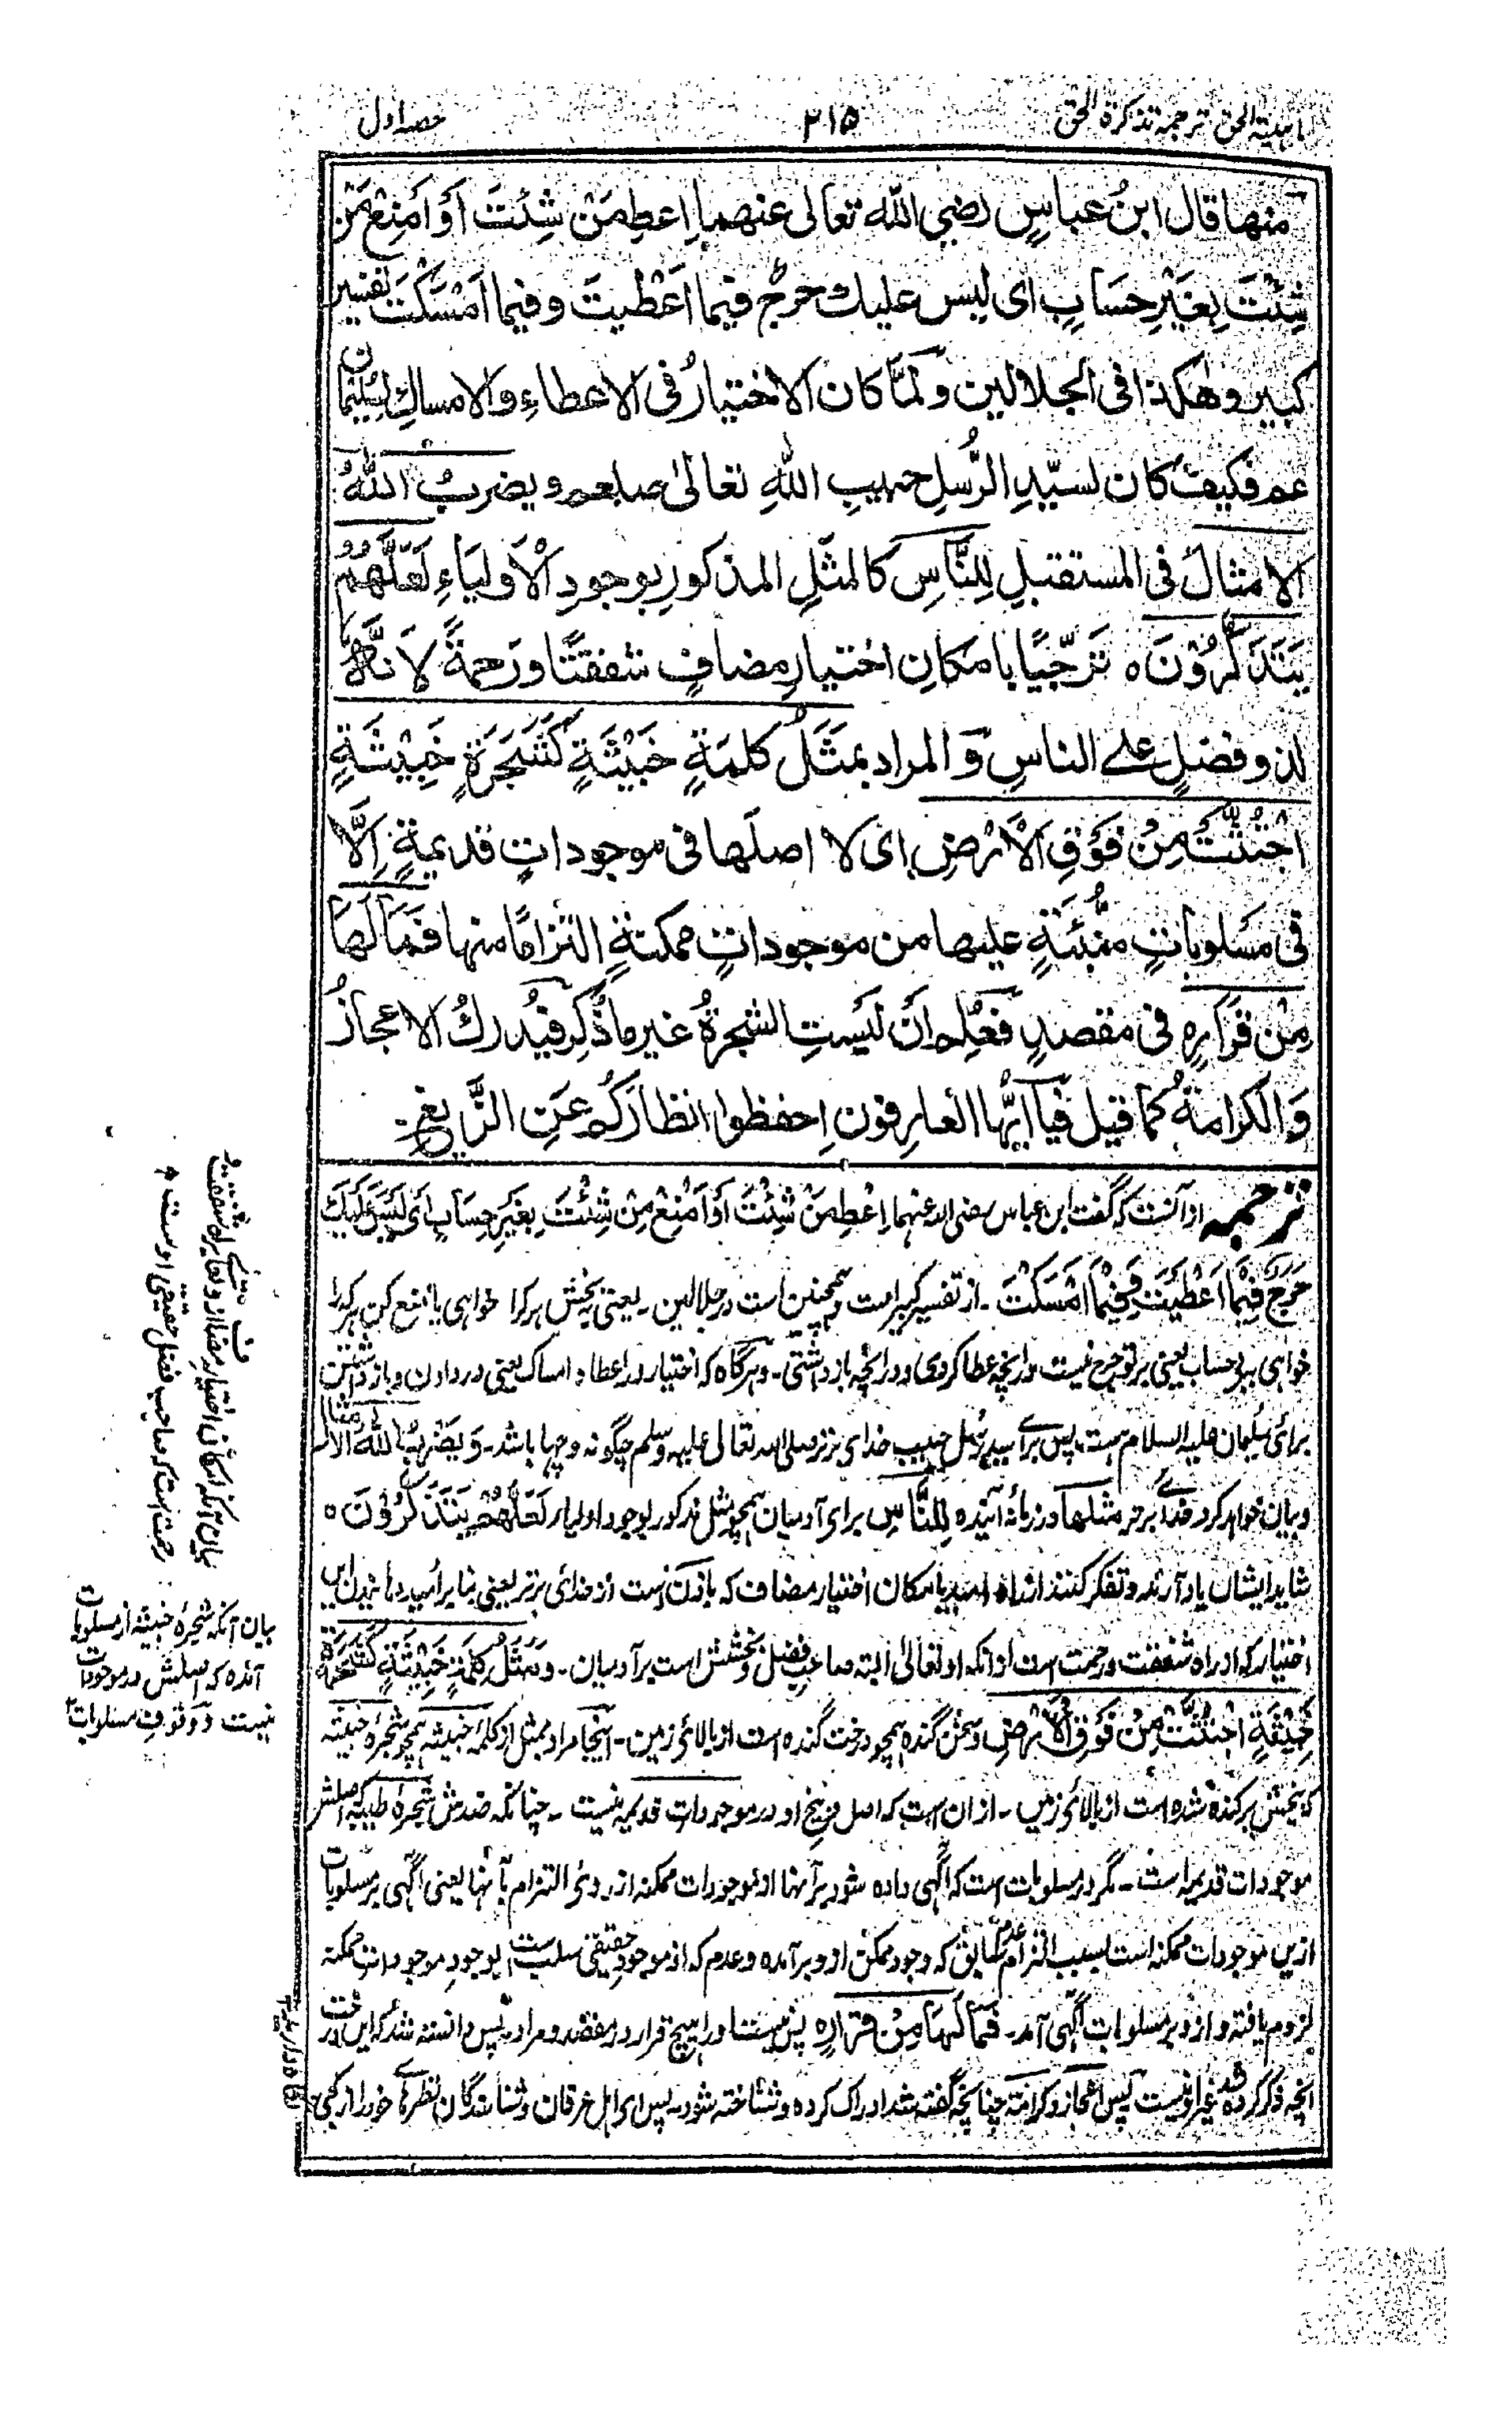 آئینة الحق ترجمه تذکرة الحق ۲۱۵ حصه اول
منها قال ابنُ عباسٍ رضي الله تعالى عنهما اِعطِ مَنْ شِئتَ اَوْ اَمنِعْ مَنْ
شِئْتَ بِغَيْرِ حِسَابٍ اى ليس عليك حرجٌ فيما اَعْطيتَ وفيما اَمْسَكْتَ تفسير
كبير وهٰكذا فى الجلالين ولَمَّا كان الاختيارُ فى الاعطاءِ والامساكِ لسليمان
عم فكيفَ كان لسيّدِ الرُّسلِ حبيبِ اللهِ تعالىٰ صلعم ويضربُ اللهُ
الامثالَ فى المستقبلِ لِلنَّاسِ كالمثلِ المذكورِ بوجودِ الْاَولياءِ لَعَلَّهُمْ
يَتَذَكَّرُوْنَ ه تَرَجّيًا بامكانِ اختيارِ مضافٍ شفقتًا ورَحمةً لانّه
لذو فضلٍ على الناسِ وَالمراد بمَثَلُ كلمَةٍ خَبِيْثَةٍ كَشَجَرَةٍ خَبِيْثَةٍ
اجْتُثَّتْ مِنْ فَوْقِ الْاَرْضِ اى لا اصلَها فى موجوداتٍ قديمةٍ اِلَّا
فى مَسلوباتٍ مُنبئةٍ عليها من موجوداتٍ ممكنةٍ التزامًا منها فَمَا لَهَا
مِنْ قَرَارٍ ه فى مقصدٍ فعُلِم اَنْ لَيْسَتِ الشجرةُ غيرَ ما ذُكِر فيُدركُ الاعجازُ
وَالكرامةُ كما قيل فيَا اَيُّها العارفون اِحفظوا انظارَكُم عَنِ الزَّيغِ
ترجمه ازآنست که گفت ابن عباس رضی الله عنهما اِعْطِ مَنْ شِئْتَ اَوْ اَمْنِعْ مِنْ شِئْتَ بِغَيْرِ حِسَابٍ اَى لَيْسَ عَلَيْكَ
حَرَجٌ فِيْمَا اَعْطَيْتَ وَفِيْمَا اَمْسَكْتَ ۔ از تفسیر کبیر است و همچنین است در جلالین ۔ یعنی بخش هر کرا خواهی یا منع کن هر کرا
خواهی بی حساب یعنی بر تو حرج نیست در آنچه عطا کردی و در آنچه باز داشتی ۔ و هرگاه که اختیار در اعطا و امساک یعنی در دادن و باز داشتن
برای سلیمان علیه السلام هست پس برای سید رسل حبیب خدای برتر صلی الله تعالی علیه وسلم چگونه و چها باشد ۔ وَيَضْرِبُ اللهُ الامثال
و بیان خواهد کرد خدای برتر مثلها در زمانه آینده لِلنَّاسِ برای آدمیان همچو مثل مذکور بوجود اولیاء لَعَلَّهُمْ يَتَذَكَّرُوْنَ ه
شاید ایشان یاد آرند و تفکر کنند از راه امید بامکان اختیار مضاف که باذن است از خدای برتر یعنی بنابر امید دادن این
اختیار که از راه شفقت و رحمت است از آنکه او تعالی البته صاحب فضل و بخشش است بر آدمیان ۔ وَمَثَلُ كَلِمَةٍ خَبِيْثَةٍ كَشَجَرَةٍ
خَبِيْثَةٍ اجْتُثَّتْ مِنْ فَوْقِ الْاَرْضِ و سخن گنده همچو درخت گنده است از بالای زمین ۔ اینجا مراد بمثل از کلمه خبیثه همچو شجره خبیثه
که بیخش برکنده شده است از بالای زمین ۔ از آن است که اصل و بیخ او در موجودات قدیمه نیست ۔ چنانکه ضدش شجره طیبه که اصلش
موجودات قدیمه است ۔ مگر در مسلوبات است که آگهی داده شود بر آنها از موجودات ممکنه از روی التزام بآنها یعنی آگهی بر مسلوبات
ازین موجودات ممکنه است بسبب التزام عدم سابق که وجود ممکن ازو برآمده و عدم که از موجود حقیقی سلب است بوجود موجودات ممکنه
لزوم یافته و ازو بر مسلوبات آگهی آمد ۔ فَمَا لَهَا مِنْ قَرَارٍ ه پس نیست او را هیچ قرار در مقصد و مراد ۔ پس دانسته شد که این درخت
آنچه ذکر کرده شد غیر او نیست پس اعجاز و کرامة چنانچه گفته شد ادراک کرده و شناخته شود ۔ پس ای اهل عرفان و شناسندگان نظرهای خود را از کجی
بیان آنکه امکان اختیار مضاف از و تعالی براه شفقت و
رحمت است که صاحب فضل حقیقی اوست
بیان آنکه شجره خبیثه از مسلوبات
آمده که اصلش در موجودات
نیست و وقوف مسلوبات